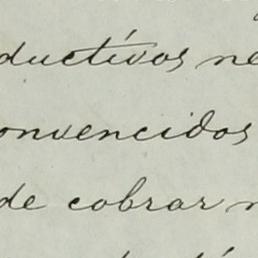 ductivos ne
onvencidos
de cobrar n